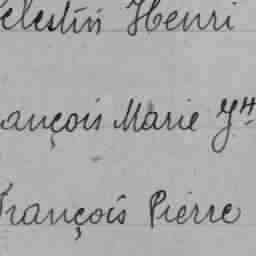 elestin Henri
ançois Marie Jh
François Pierre